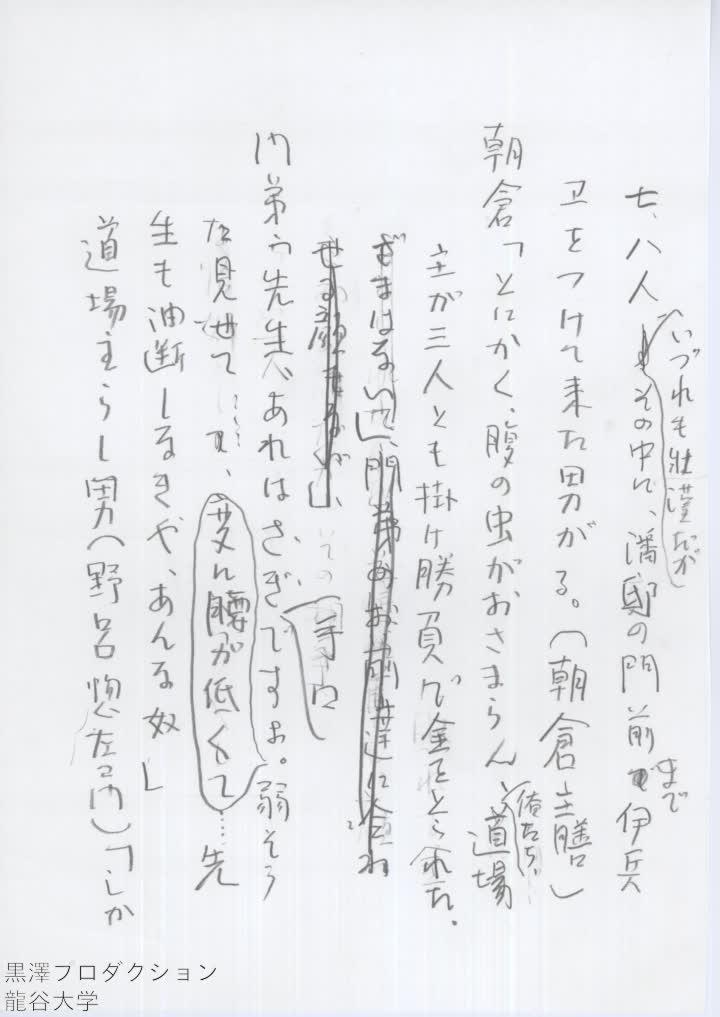 七、八人
(いづれも壮漢だが)
その中に、藩邸の門前まで伊兵
卫をつけて来た男がゐる。(朝倉主膳)
朝倉「とにかく、腹の虫がおさまらん、俺たち、道場
主が三人とも掛け勝負で金をとられた。
ざまはない」
門弟う先生、あれはさぎですよ。弱そう
手口
な見せて……て、変に腰が低くて……先
生も油断しるきや、あんな奴」
道場主らし男(野呂惣左ヱ門)「しか
黒澤プロダクション
龍谷大学